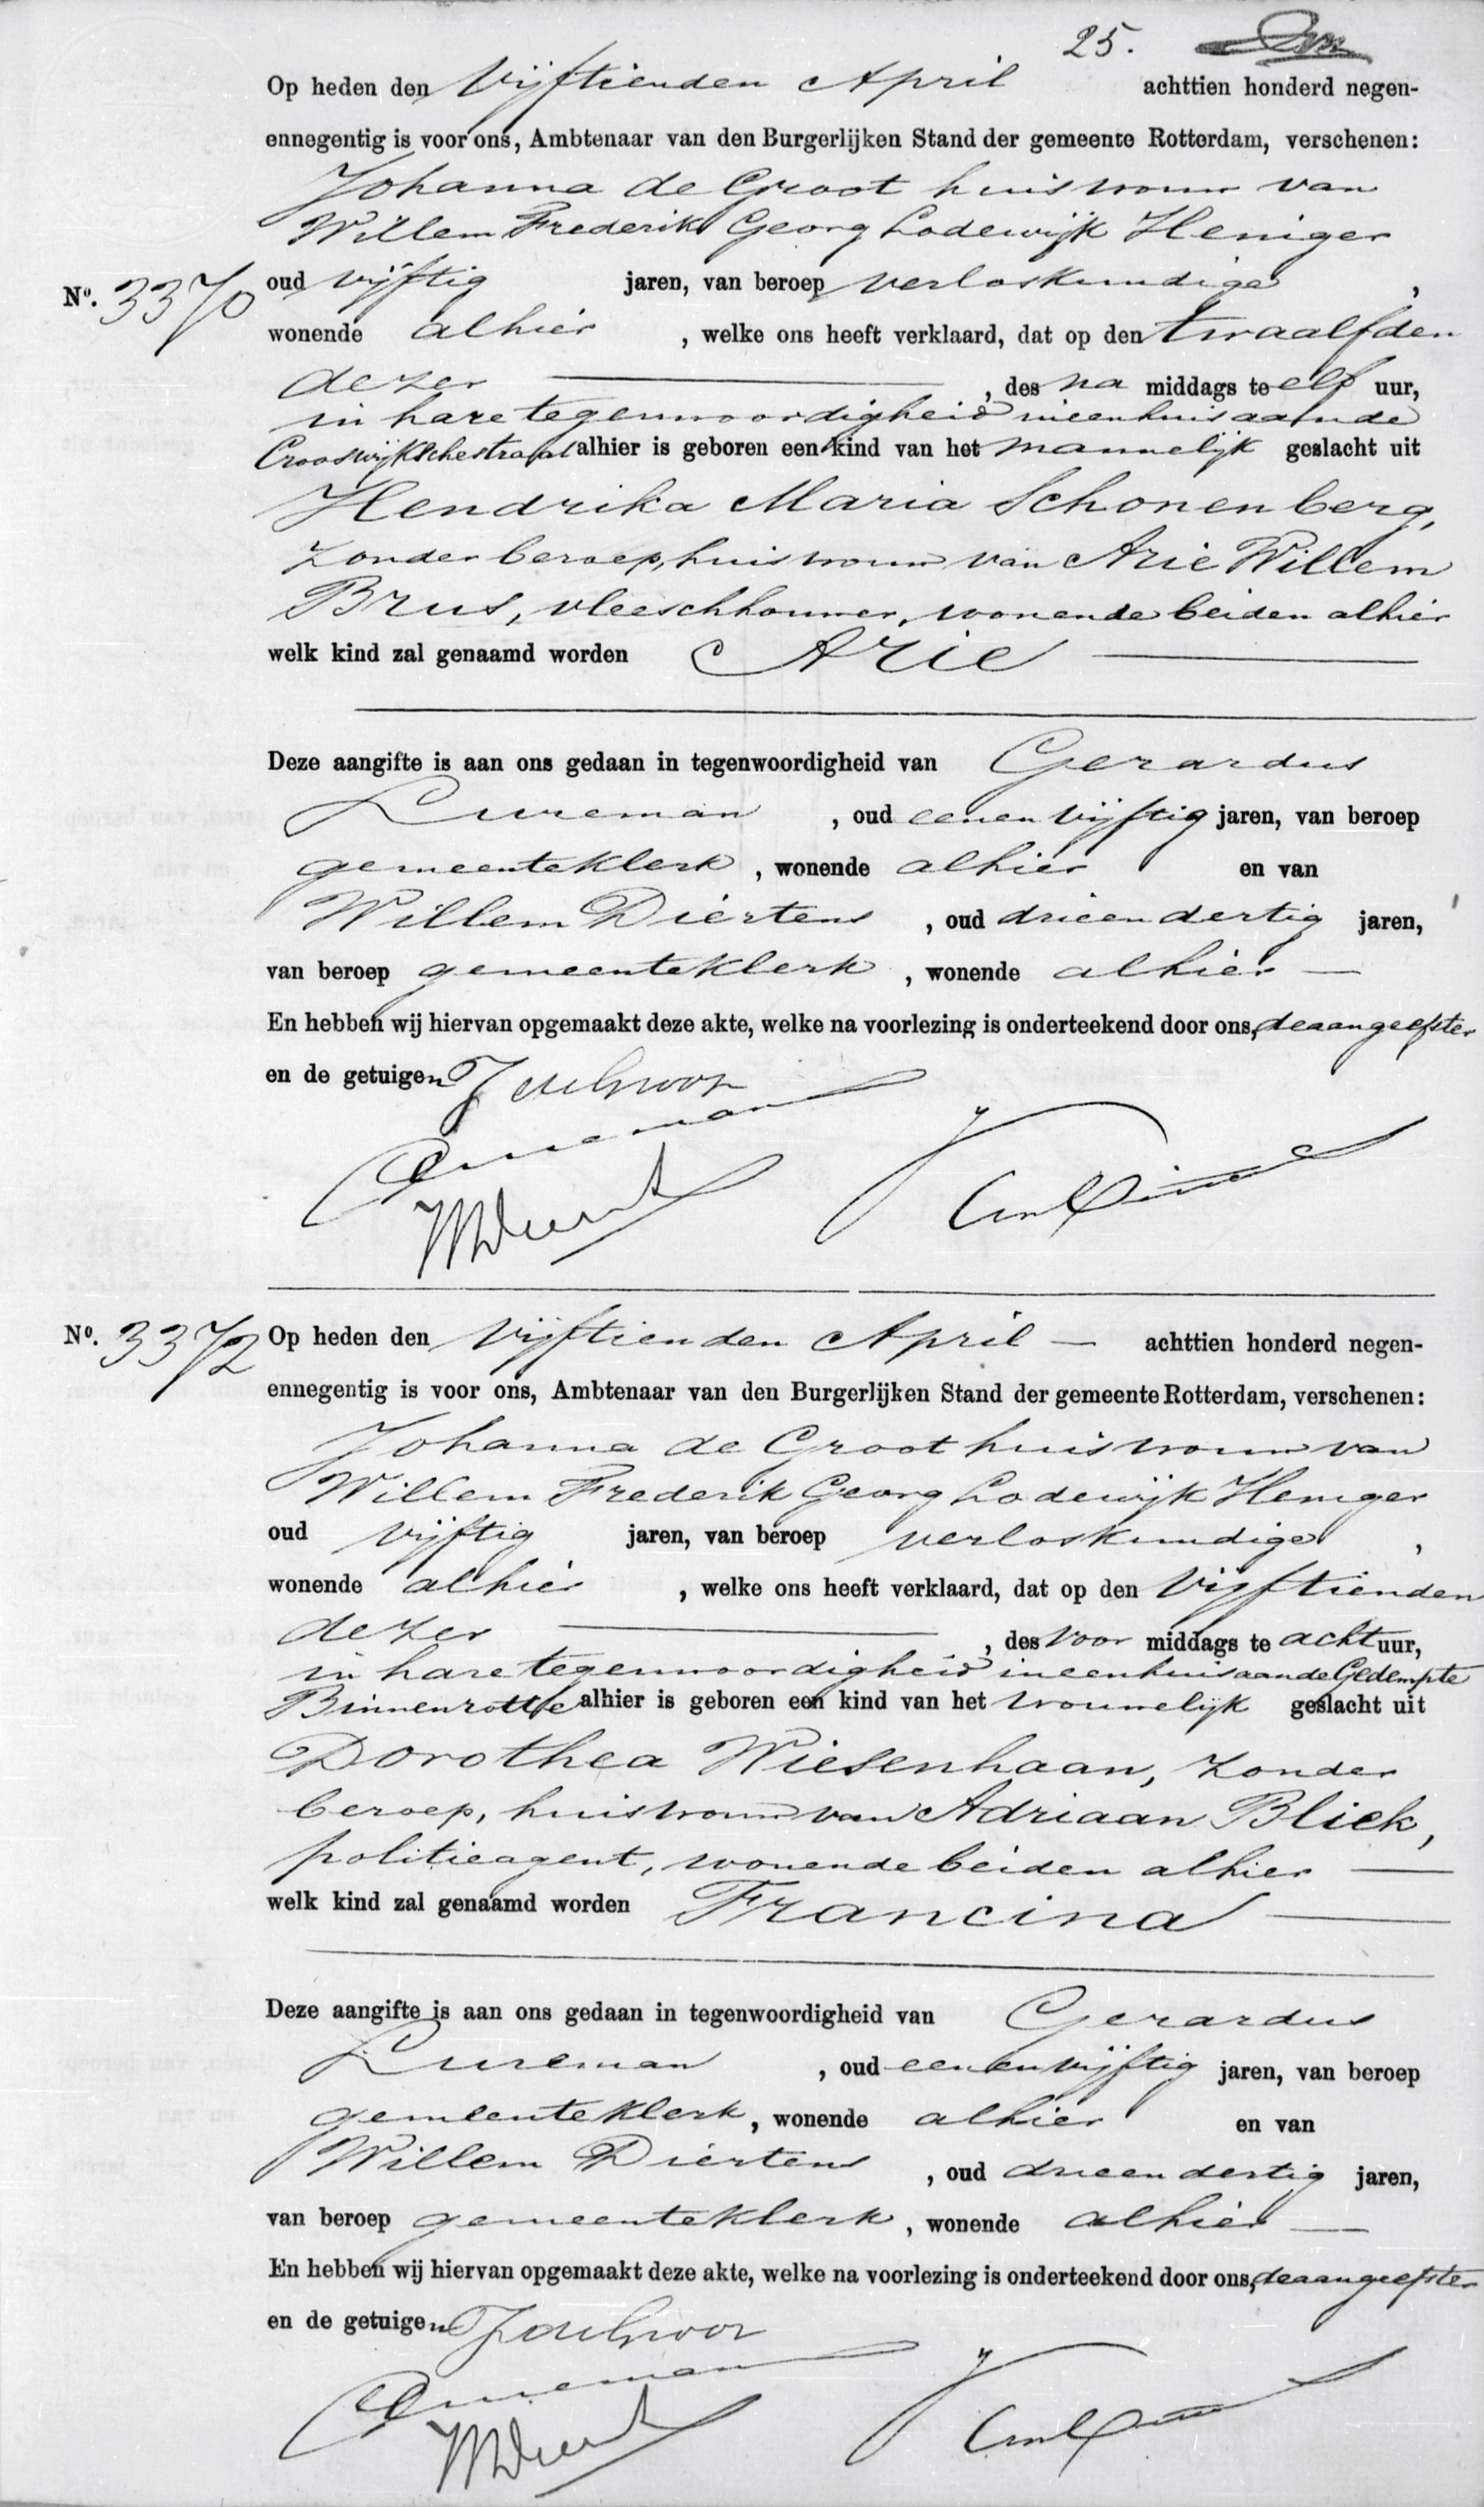 25.
Op heden den Vijftienden April achttien honderd negen-
ennegentig is voor ons, Ambtenaar van den Burgerlijken Stand der gemeente Rotterdam, verschenen:
Johanna de Groot huisvrouw van
Willem Frederik Georg Lodewijk Heniger
No. 3370 oud vijftig jaren, van beroep verloskundige,
wonende alhier, welke ons heeft verklaard, dat op den twaalfden
dezer, des na middags te elf uur,
in hare tegenwoordigheid in een huis aan de
Crooswijkschestraat alhier is geboren een kind van het mannelijk geslacht uit
Hendrika Maria Schonenberg,
zonder beroep, huisvrouw van Arie Willem
Brus, vleeschhouwer, wonende beiden alhier
welk kind zal genaamd worden Arie
Deze aangifte is aan ons gedaan in tegenwoordigheid van Gerardus
Lureman, oud eenenvijftig jaren, van beroep
gemeenteklerk, wonende alhier en van
Willem Diertens, oud drieendertig jaren,
van beroep gemeenteklerk, wonende alhier
En hebben wij hiervan opgemaakt deze akte, welke na voorlezing is onderteekend door ons, de aangeefster
en de getuigen J de Groot
No. 3372 Op heden den Vijftienden April achttien honderd negen-
ennegentig is voor ons, Ambtenaar van den Burgerlijken Stand der gemeente Rotterdam, verschenen:
Johanna de Groot huisvrouw van
Willem Frederik Georg Lodewijk Heniger
oud vijftig jaren, van beroep verloskundige,
wonende alhier, welke ons heeft verklaard, dat op den Vijftienden
dezer, des voor middags te acht uur,
in hare tegenwoordigheid in een huis aan de Gedempte
Binnenrotte alhier is geboren een kind van het vrouwelijk geslacht uit
Dorothea Wiesenhaan, zonder
beroep, huisvrouw van Adriaan Bliek,
politieagent, wonende beiden alhier
welk kind zal genaamd worden Francina
Deze aangifte is aan ons gedaan in tegenwoordigheid van Gerardus
Lureman, oud eenenvijftig jaren, van beroep
gemeenteklerk, wonende alhier en van
Willem Diertens, oud drieendertig jaren,
van beroep gemeenteklerk, wonende alhier
En hebben wij hiervan opgemaakt deze akte, welke na voorlezing is onderteekend door ons, de aangeefster
en de getuigen J de Groot